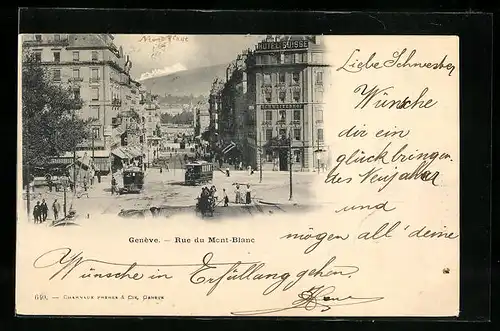 Mont Blanc
HÔTEL SUISSE
SCHWEIZERHOF
Genève. – Rue du Mont-Blanc
640. – Charnaux Frères & Cie, Genève
Liebe Schwester
Wünsche
dir ein
glückbringen
des Neujahr
und
mögen all' deine
Wünsche in Erfüllung gehen.